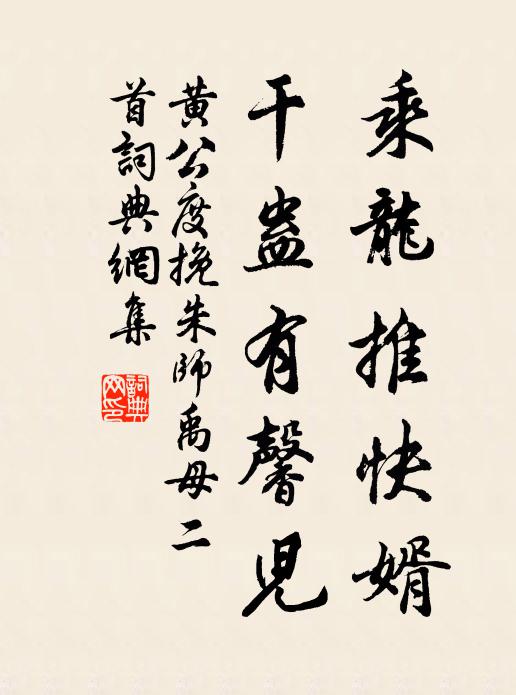 乘龍推快婿
干蠱有馨兒
黃公度挽朱師禹母二
首詞典網集
詞典
网印